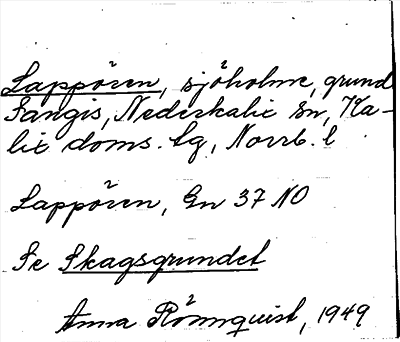 Lappören, sjöholme, grund
Sangis, Nederkalix sn, Ka-
lix doms. lg, Norrb. l
Lappören, Gn 37 NO
Se Skagsgrundet
Anna Rönnquist, 1949